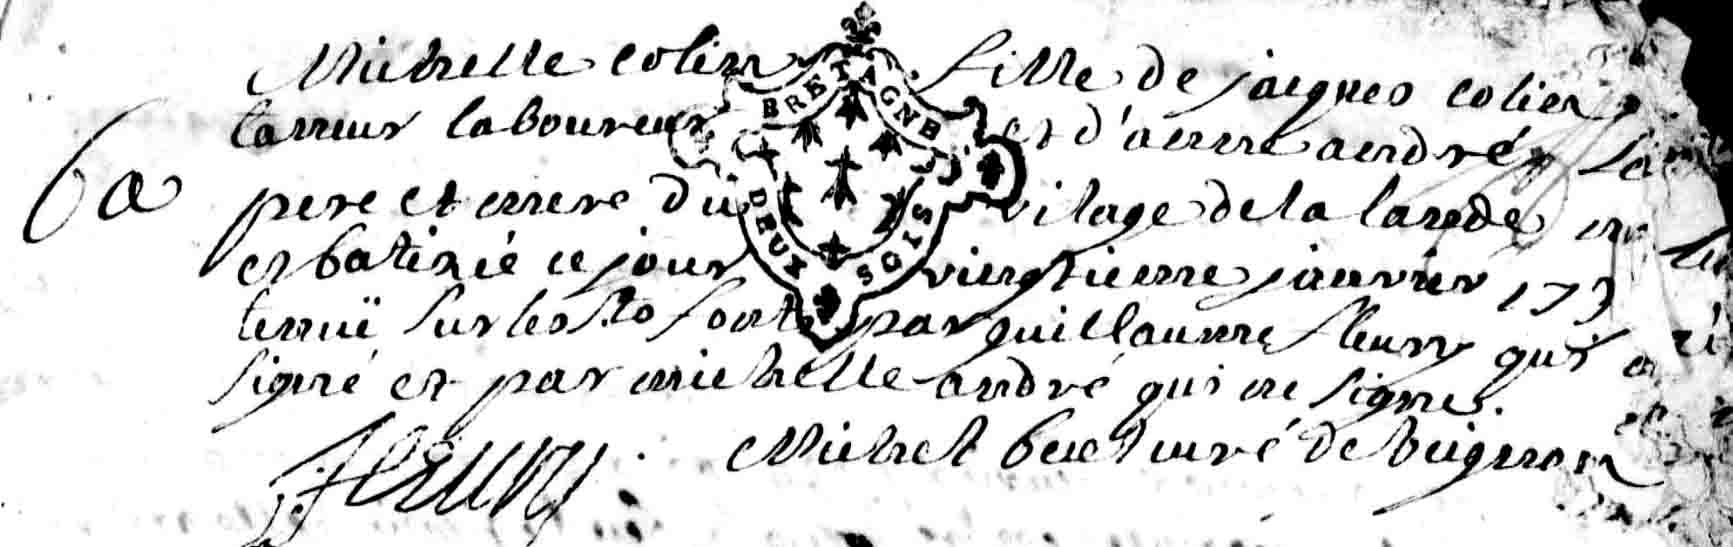 Michelle colin fille de jacques colin
tanneur laboureur et d'anne andré
6a
pere et mere du vilage de la lande
BRETAGNE
DEUX SOLS
et batizée ce jour vingtieme janvier 173
tenuë sur les fonts par guillaume fleury qui a
signé et par michelle andré qui ne signe.
fleury
Michel curé de beignon